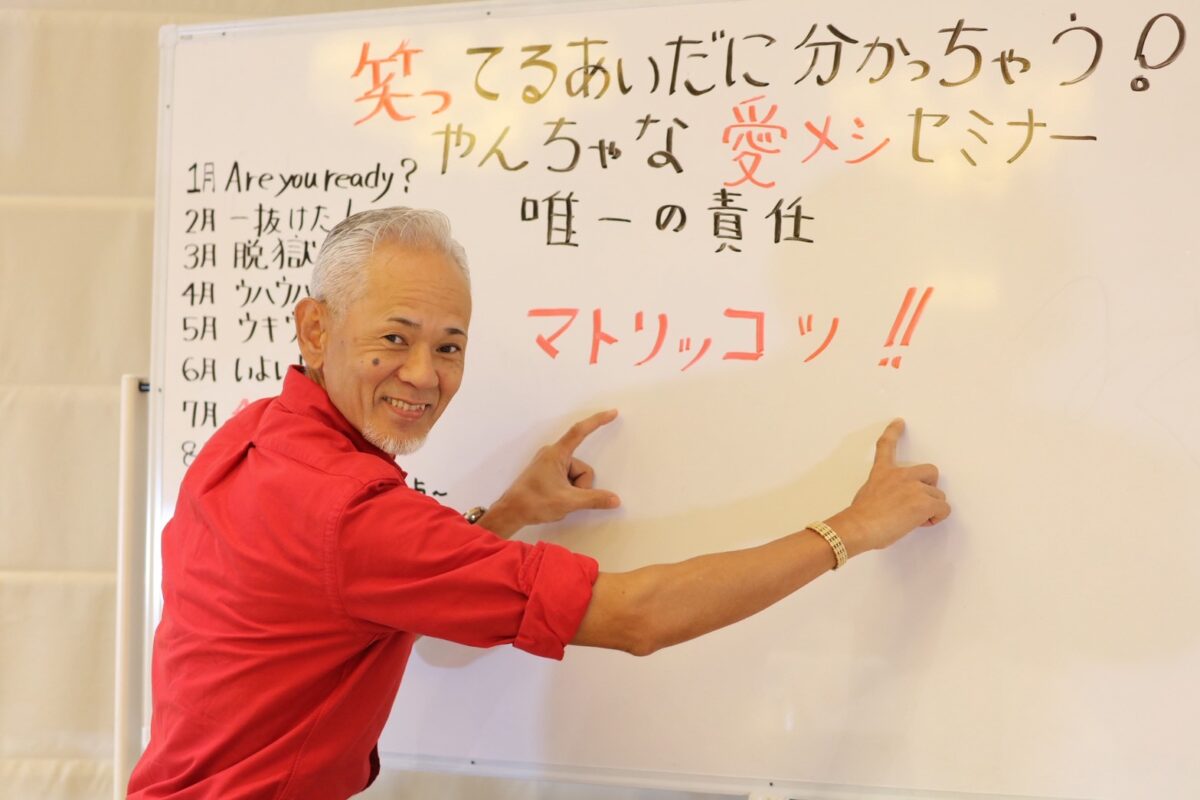 笑ってるあいだに分かっちゃう!?
やんちゃな愛メシセミナー
唯一の責任
マトリッコッ!!
1月 Are you ready?
2月 一抜けた!
3月 脱獄
4月 ウハウハ
5月 ウキウ
6月 いよい
7月
8
点~